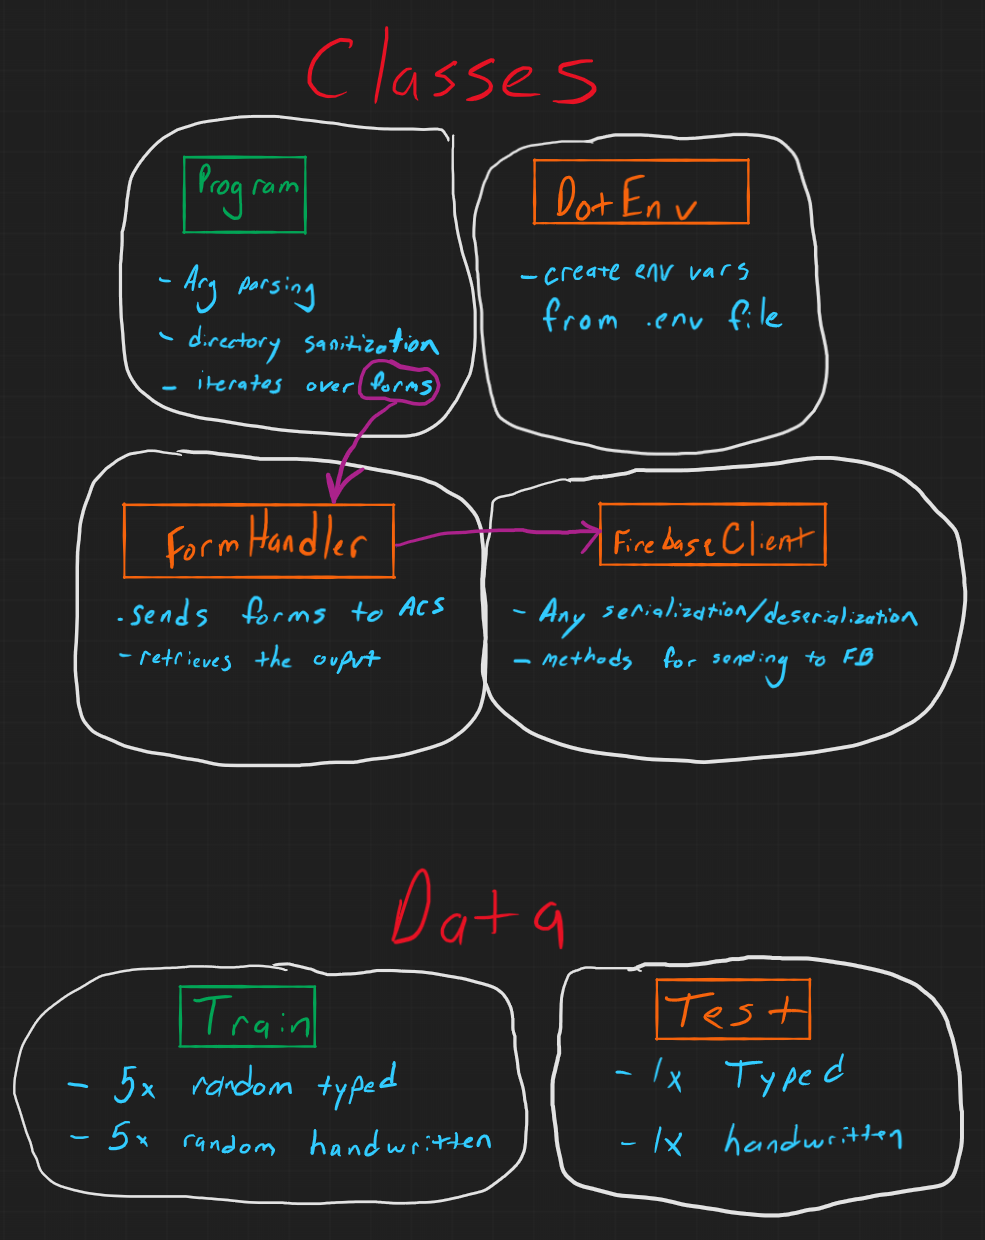 Classes
Program
- Arg parsing
- directory sanitization
- iterates over forms
DotEnv
- create env vars
from .env file
FormHandler
. sends forms to ACS
- retrieves the ouput
FirebaseClient
- Any serialization/deserialization
- methods for sending to FB
Data
Train
- 5x random typed
- 5x random handwritten
Test
- 1x Typed
- 1x handwritten